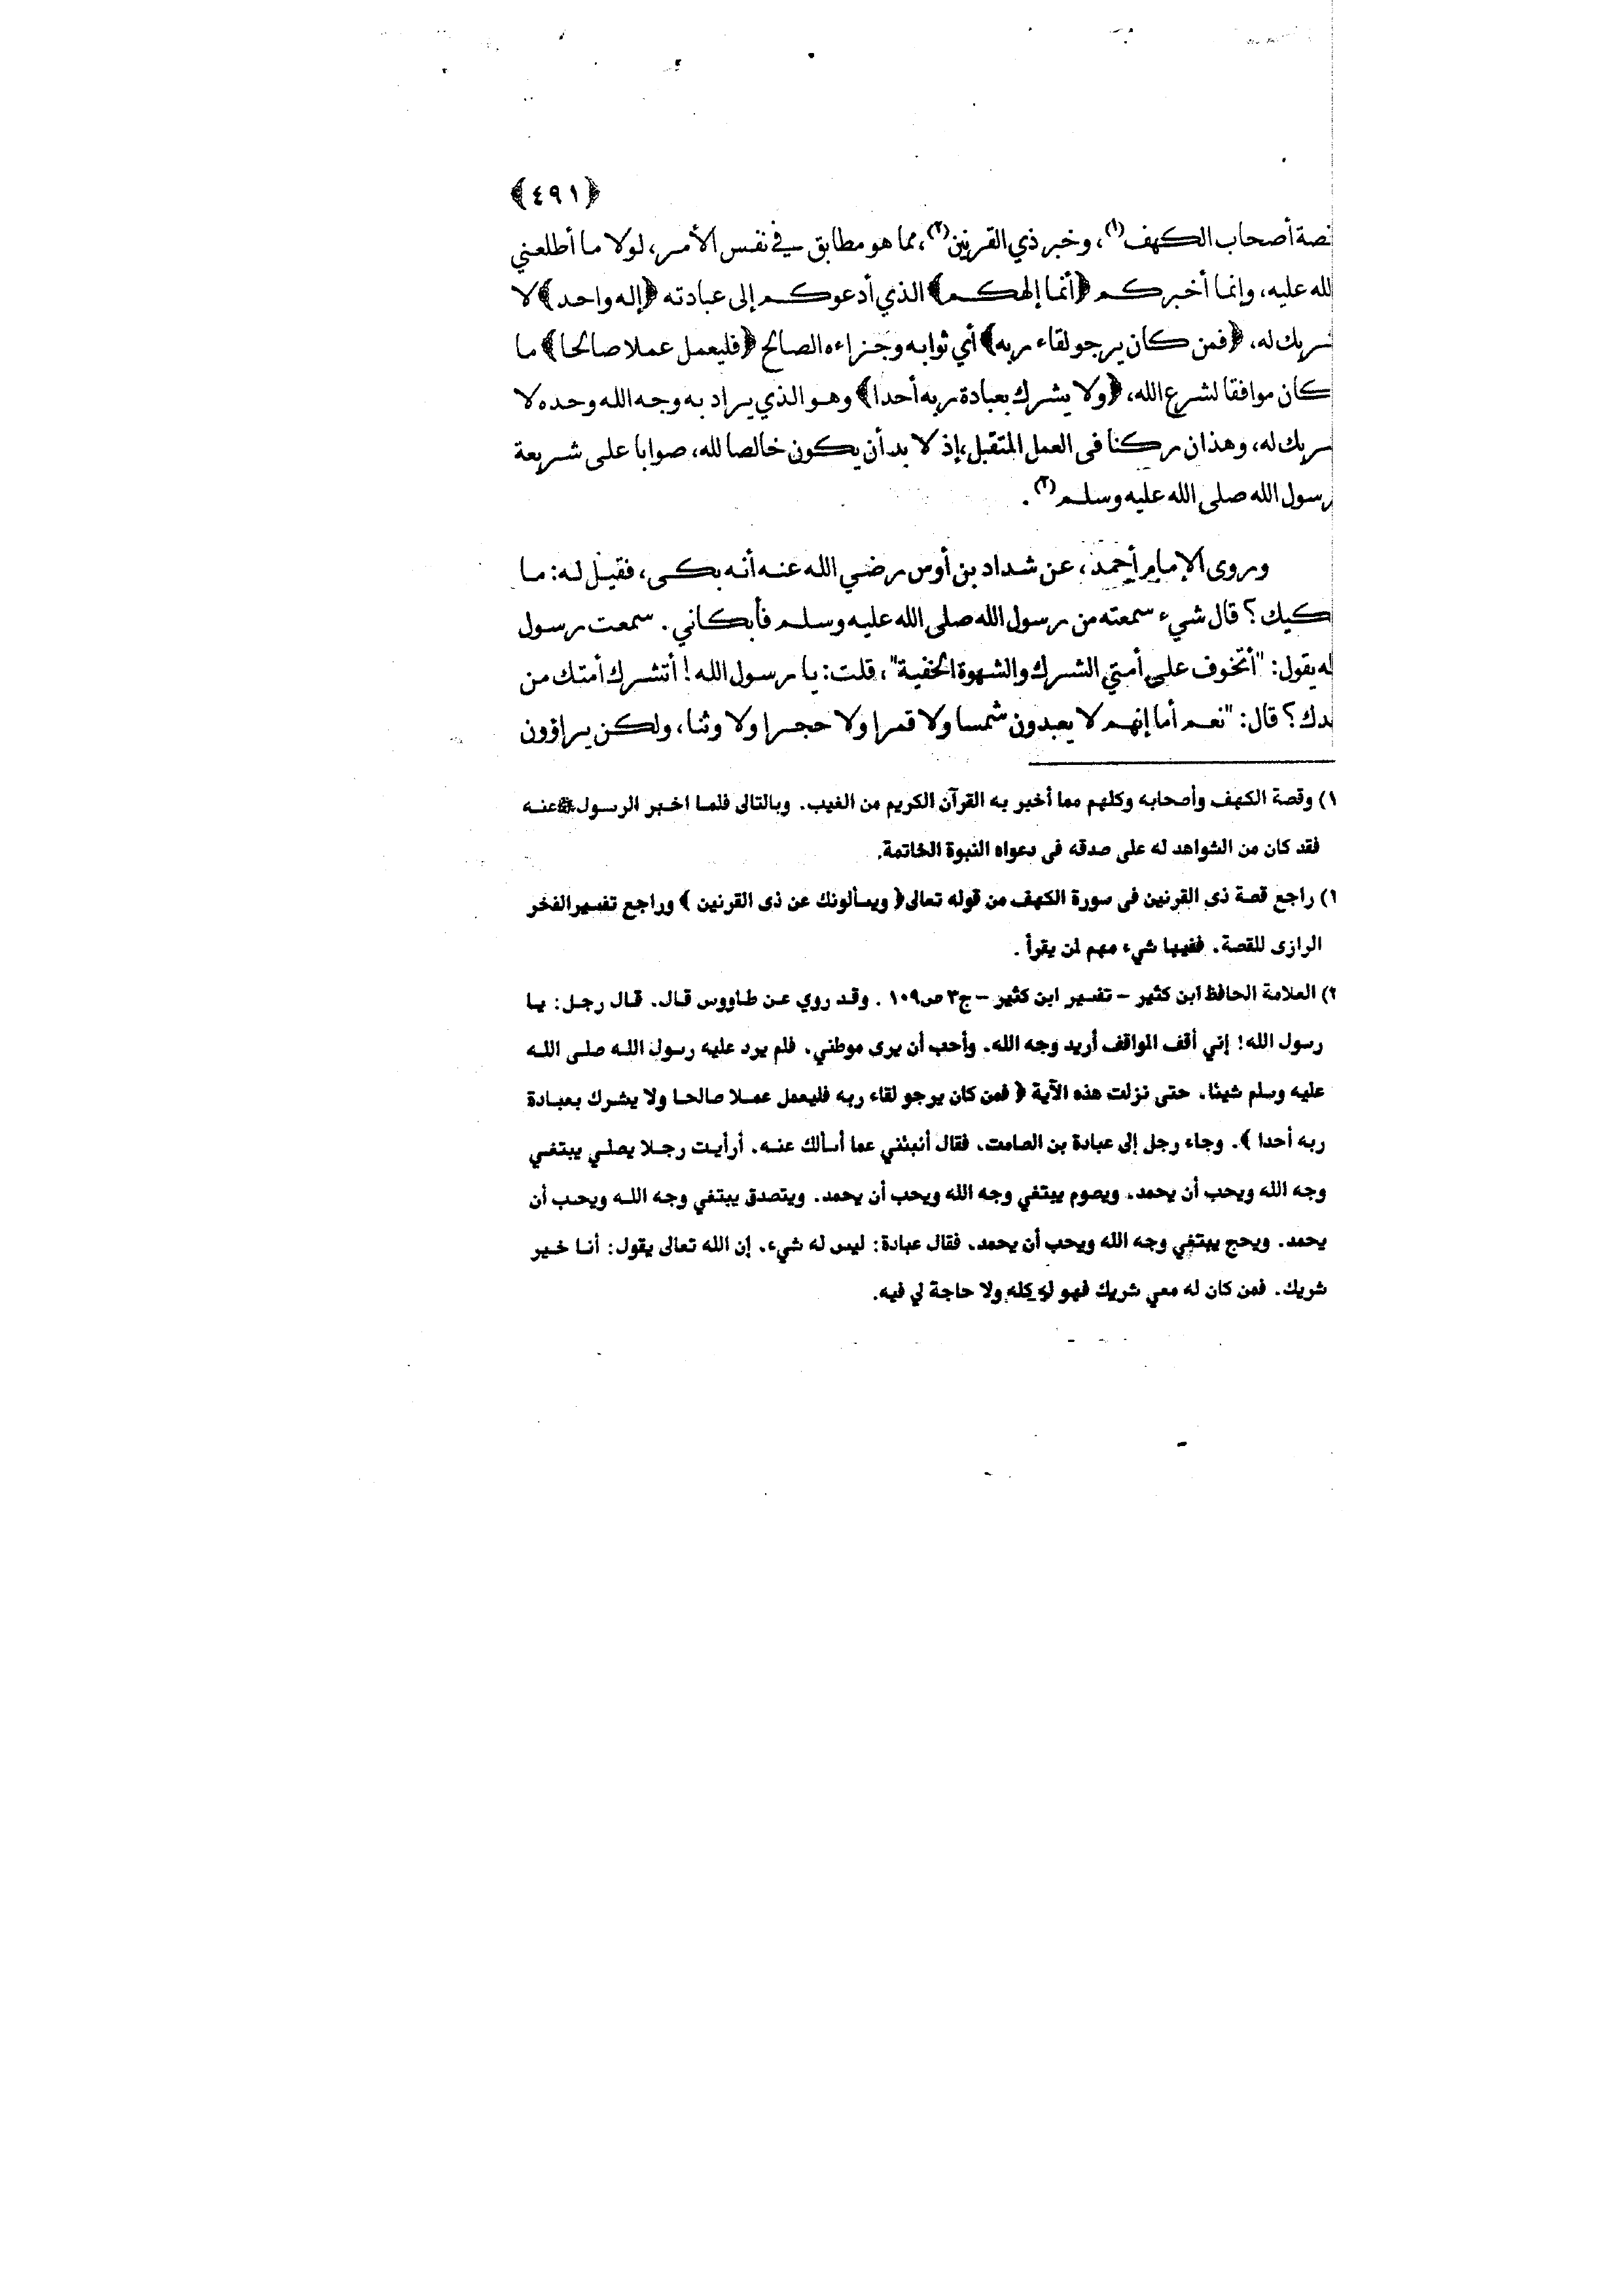 ﴿٤٩١﴾
قصة أصحاب الكهف(١)، وخبر ذي القرنين(٢)، مما هو مطابق في نفس الأمر، لولا ما أطلعني
لله عليه، وإنما أخبركم ﴿أنما إلهكم﴾ الذي أدعوكم إلى عبادته ﴿إله واحد﴾ لا
شريك له، ﴿فمن كان يرجو لقاء ربه﴾ أي ثوابه وجزاءه الصالح ﴿فليعمل عملا صالحا﴾ ما
كان موافقا لشرع الله، ﴿ولا يشرك بعبادة ربه أحدا﴾ وهو الذي يراد به وجه الله وحده لا
شريك له، وهذان ركنا فى العمل المتقبل، إذ لا بد أن يكون خالصا لله، صوابا على شريعة
رسول الله صلى الله عليه وسلم(٣).
وروى الإمام أحمد، عن شداد بن أوس رضي الله عنه أنه بكى، فقيل له: ما
كيك؟ قال شيء سمعته من رسول الله صلى الله عليه وسلم فأبكاني. سمعت رسول
له يقول: "أتخوف على أمتي الشرك والشهوة الخفية"، قلت: يا رسول الله! أتشرك أمتك من
دك؟ قال: "نعم أما إنهم لا يعبدون شمسا ولا قمرا ولا حجرا ولا وثنا، ولكن يراؤون
١) وقصة الكهف وأصحابه وكلهم مما أخبر به القرآن الكريم من الغيب. وبالتالى فلما اخبر الرسول ﷺ عنه
فقد كان من الشواهد له على صدقه فى دعواه النبوة الخاتمة.
٢) راجع قصة ذى القرنين فى سورة الكهف من قوله تعالى ﴿ ويسألونك عن ذى القرنين ﴾ وراجع تفسير الفخر
الرازى للقصة. ففيها شيء مهم لمن يقرأ .
٣) العلامة الحافظ ابن كثير – تفسير ابن كثير – ج٣ ص١٠٩ . وقد روي عن طاووس قال. قال رجل: يا
رسول الله! إني أقف المواقف أريد وجه الله. وأحب أن يرى موطني. فلم يرد عليه رسول الله صلى الله
عليه وسلم شيئا. حتى نزلت هذه الآية ﴿ فمن كان يرجو لقاء ربه فليعمل عملا صالحا ولا يشرك بعبادة
ربه أحدا ﴾. وجاء رجل إلى عبادة بن الصامت. فقال أنبئني عما أسألك عنه. أرأيت رجلا يصلي يبتغي
وجه الله ويحب أن يحمد. ويصوم يبتغي وجه الله ويحب أن يحمد. ويتصدق يبتغي وجه الله ويحب أن
يحمد. ويحج يبتغي وجه الله ويحب أن يحمد. فقال عبادة: ليس له شيء. إن الله تعالى يقول: أنا خير
شريك. فمن كان له معي شريك فهو له كله ولا حاجة لي فيه.